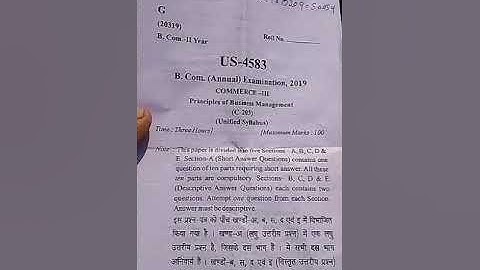 G
(20319)
Roll No.
B. Com.-II Year
US-4583
B. Com. (Annual) Examination, 2019
COMMERCE -III
Principles of Business Management
(C-203)
(Unified Syllabus)
Time : Three Hours] [Maximum Marks : 100
Note : This paper is divided into five Sections - A, B, C, D &
E. Section-A (Short Answer Questions) contains one
question of ten parts requiring short answer. All these
are parts are compulsory. Sections- B, C, D & E
(Descriptive Answer Questions) each contains two
questions. Attempt one question from each Section.
Answer must be descriptive.
इस प्रश्न पत्र को पाँच खण्डों-अ, ब, स, द एवं इ में विभाजित
किया गया है । खण्ड-अ (लघु उत्तरीय प्रश्न) में एक लघु
उत्तरीय प्रश्न है, जिसके दस भाग हैं । ये सभी दस भाग
अनिवार्य हैं । खण्डों-ब, स, द एवं इ (विस्तृत उत्तरीय प्रश्न)